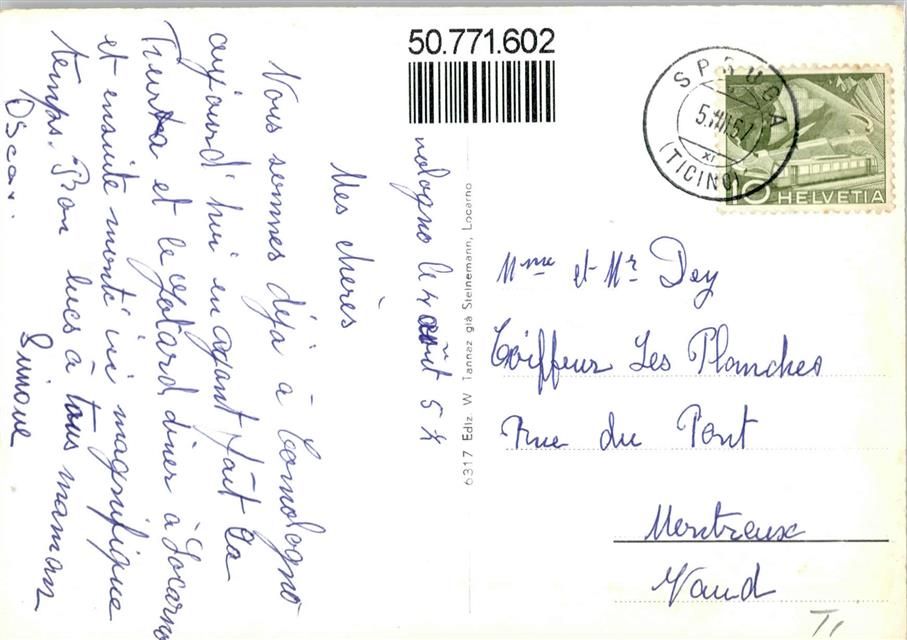 50.771.602
nologno le 4 août 57
Mes chères
Nous sommes déjà à Comologno
aujourd'hui en ayant fait la
Furka et le Gotard diner à Locarno
et ensuite monté ici magnifique
temps. Bon becs à tous maman
Oscar. Simone
6317 Ediz. W Tannaz già Steinemann, Locarno
SPRUGA
5.VIII.57
XI
(TICINO)
10 HELVETIA
Mme et Mr Dey
Coiffeur Les Planches
Rue du Pont
Montreux
Vaud